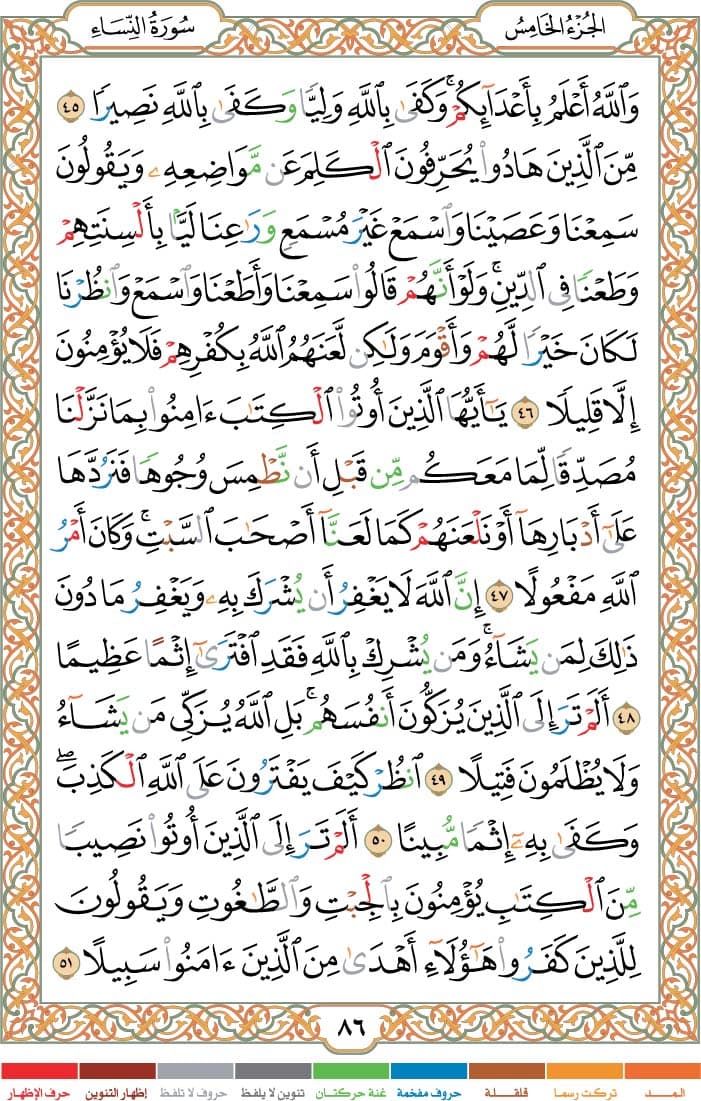 الجُزْءُ الخَامِسُ
سُورَةُ النِّسَاءِ
وَٱللَّهُ أَعْلَمُ بِأَعْدَآئِكُمْ ۚ وَكَفَىٰ بِٱللَّهِ وَلِيًّا وَكَفَىٰ بِٱللَّهِ نَصِيرًا ٤٥
مِّنَ ٱلَّذِينَ هَادُوا۟ يُحَرِّفُونَ ٱلْكَلِمَ عَن مَّوَاضِعِهِۦ وَيَقُولُونَ
سَمِعْنَا وَعَصَيْنَا وَٱسْمَعْ غَيْرَ مُسْمَعٍ وَرَٰعِنَا لَيًّۢا بِأَلْسِنَتِهِمْ
وَطَعْنًا فِى ٱلدِّينِ ۚ وَلَوْ أَنَّهُمْ قَالُوا۟ سَمِعْنَا وَأَطَعْنَا وَٱسْمَعْ وَٱنظُرْنَا
لَكَانَ خَيْرًا لَّهُمْ وَأَقْوَمَ وَلَٰكِن لَّعَنَهُمُ ٱللَّهُ بِكُفْرِهِمْ فَلَا يُؤْمِنُونَ
إِلَّا قَلِيلًا ٤٦ يَٰٓأَيُّهَا ٱلَّذِينَ أُوتُوا۟ ٱلْكِتَٰبَ ءَامِنُوا۟ بِمَا نَزَّلْنَا
مُصَدِّقًا لِّمَا مَعَكُم مِّن قَبْلِ أَن نَّطْمِسَ وُجُوهًا فَنَرُدَّهَا
عَلَىٰٓ أَدْبَارِهَآ أَوْ نَلْعَنَهُمْ كَمَا لَعَنَّآ أَصْحَٰبَ ٱلسَّبْتِ ۚ وَكَانَ أَمْرُ
ٱللَّهِ مَفْعُولًا ٤٧ إِنَّ ٱللَّهَ لَا يَغْفِرُ أَن يُشْرَكَ بِهِۦ وَيَغْفِرُ مَا دُونَ
ذَٰلِكَ لِمَن يَشَآءُ ۚ وَمَن يُشْرِكْ بِٱللَّهِ فَقَدِ ٱفْتَرَىٰٓ إِثْمًا عَظِيمًا
٤٨ أَلَمْ تَرَ إِلَى ٱلَّذِينَ يُزَكُّونَ أَنفُسَهُم ۚ بَلِ ٱللَّهُ يُزَكِّى مَن يَشَآءُ
وَلَا يُظْلَمُونَ فَتِيلًا ٤٩ ٱنظُرْ كَيْفَ يَفْتَرُونَ عَلَى ٱللَّهِ ٱلْكَذِبَ ۖ
وَكَفَىٰ بِهِۦٓ إِثْمًا مُّبِينًا ٥٠ أَلَمْ تَرَ إِلَى ٱلَّذِينَ أُوتُوا۟ نَصِيبًا
مِّنَ ٱلْكِتَٰبِ يُؤْمِنُونَ بِٱلْجِبْتِ وَٱلطَّٰغُوتِ وَيَقُولُونَ
لِلَّذِينَ كَفَرُوا۟ هَٰٓؤُلَآءِ أَهْدَىٰ مِنَ ٱلَّذِينَ ءَامَنُوا۟ سَبِيلًا ٥١
٨٦
المـــد تركت رسما قلقلـــة حروف مفخمة غنة حركتان تنوين لا يلفظ حروف لا تلفظ إظهار التنوين حرف الإظهار